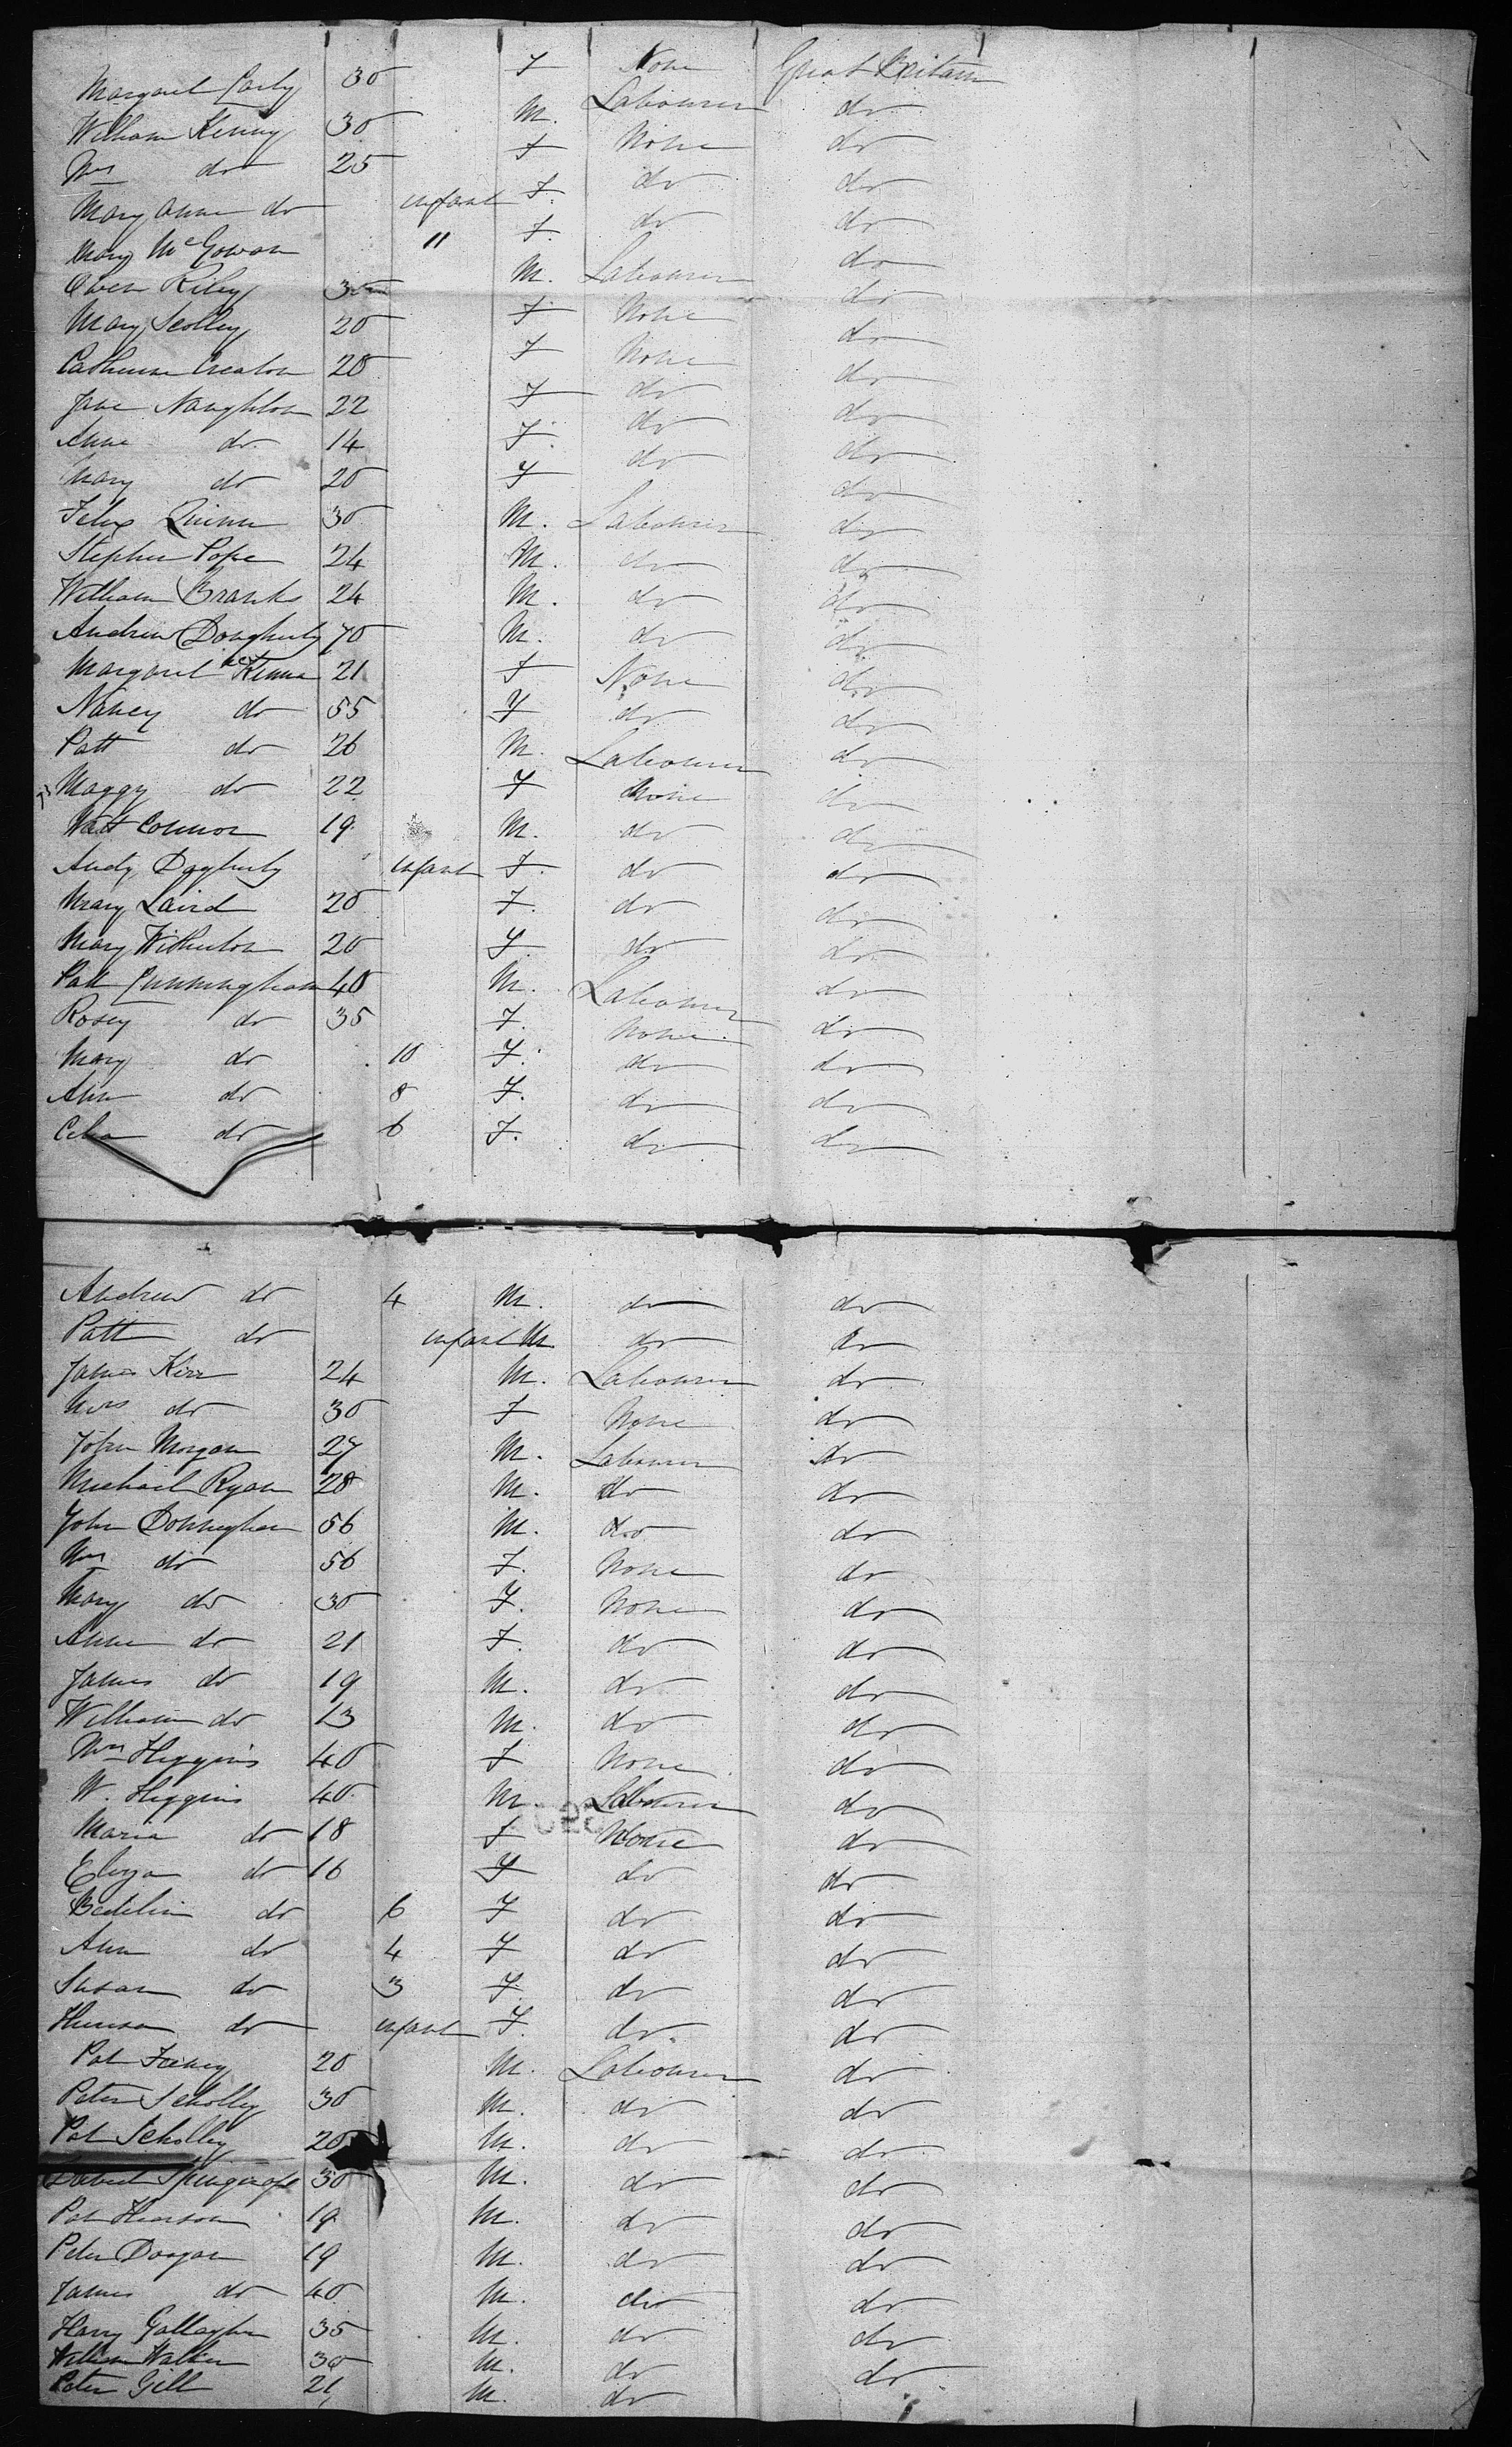 Margaret Carly 30 F None Great Britain
William Kenny 30 M. Labourer do
Mrs do 25 F None do
Mary Anne do infant F. do do
Mary McGowan " F. do do
Owen Riley 30 M. Labourer do
Mary Scolley 20 F None do
Catherine Creaton 20 F None do
Jane Naughton 22 F do do
Anne do 14 F. do do
Mary do 20 F do do
Felix Quinn 30 M. Labourer do
Stephen Pope 24 M. do do
William Branks 24 M. do do
Andrew Dougherty 70 M. do do
Margaret McKenna 21 F None do
Nancy do 55 F do do
Patt do 26 M. Labourer do
Maggy do 22 F None do
Connor 19 M. do do
Andy Dogherty infant F. do do
Mary Laird 20 F. do do
Mary Witherton 20 F do do
Patt Cunningham 40 M. Labourer do
Rosey do 35 F. None do
Mary do 10 F. do do
Ann do 8 F. do do
Celia do 6 F. do do
Andrew do 4 M. do do
Patt do infant M. do do
James Kirr 24 M. Labourer do
Mrs do 30 F None do
John Morgan 27 M. Labourer do
Michail Ryan 28 M. do do
John Donnighan 56 M. do do
Mrs do 56 F. None do
Mary do 30 F. None do
Anne do 21 F. do do
James do 19 M. do do
William do 13 M. do do
Mrs Higgins 40 F None do
W. Higgins 40 M. Labourer do
Maria do 18 F None do
Eliza do 16 F do do
Bedelia do 6 F do do
Ann do 4 F do do
Susan do 3 F. do do
Theresa do infant F. do do
Pat Feeney 20 M. Labourer do
Peter Scholley 30 M. do do
Pat Scholley 20 M. do do
30 M. do do
Pat 19 M. do do
Peter Doogan 19 M. do do
James do 40 M. do do
Harry Gallagher 35 M. do do
William Walker 30 M. do do
Peter Gill 21 M. do